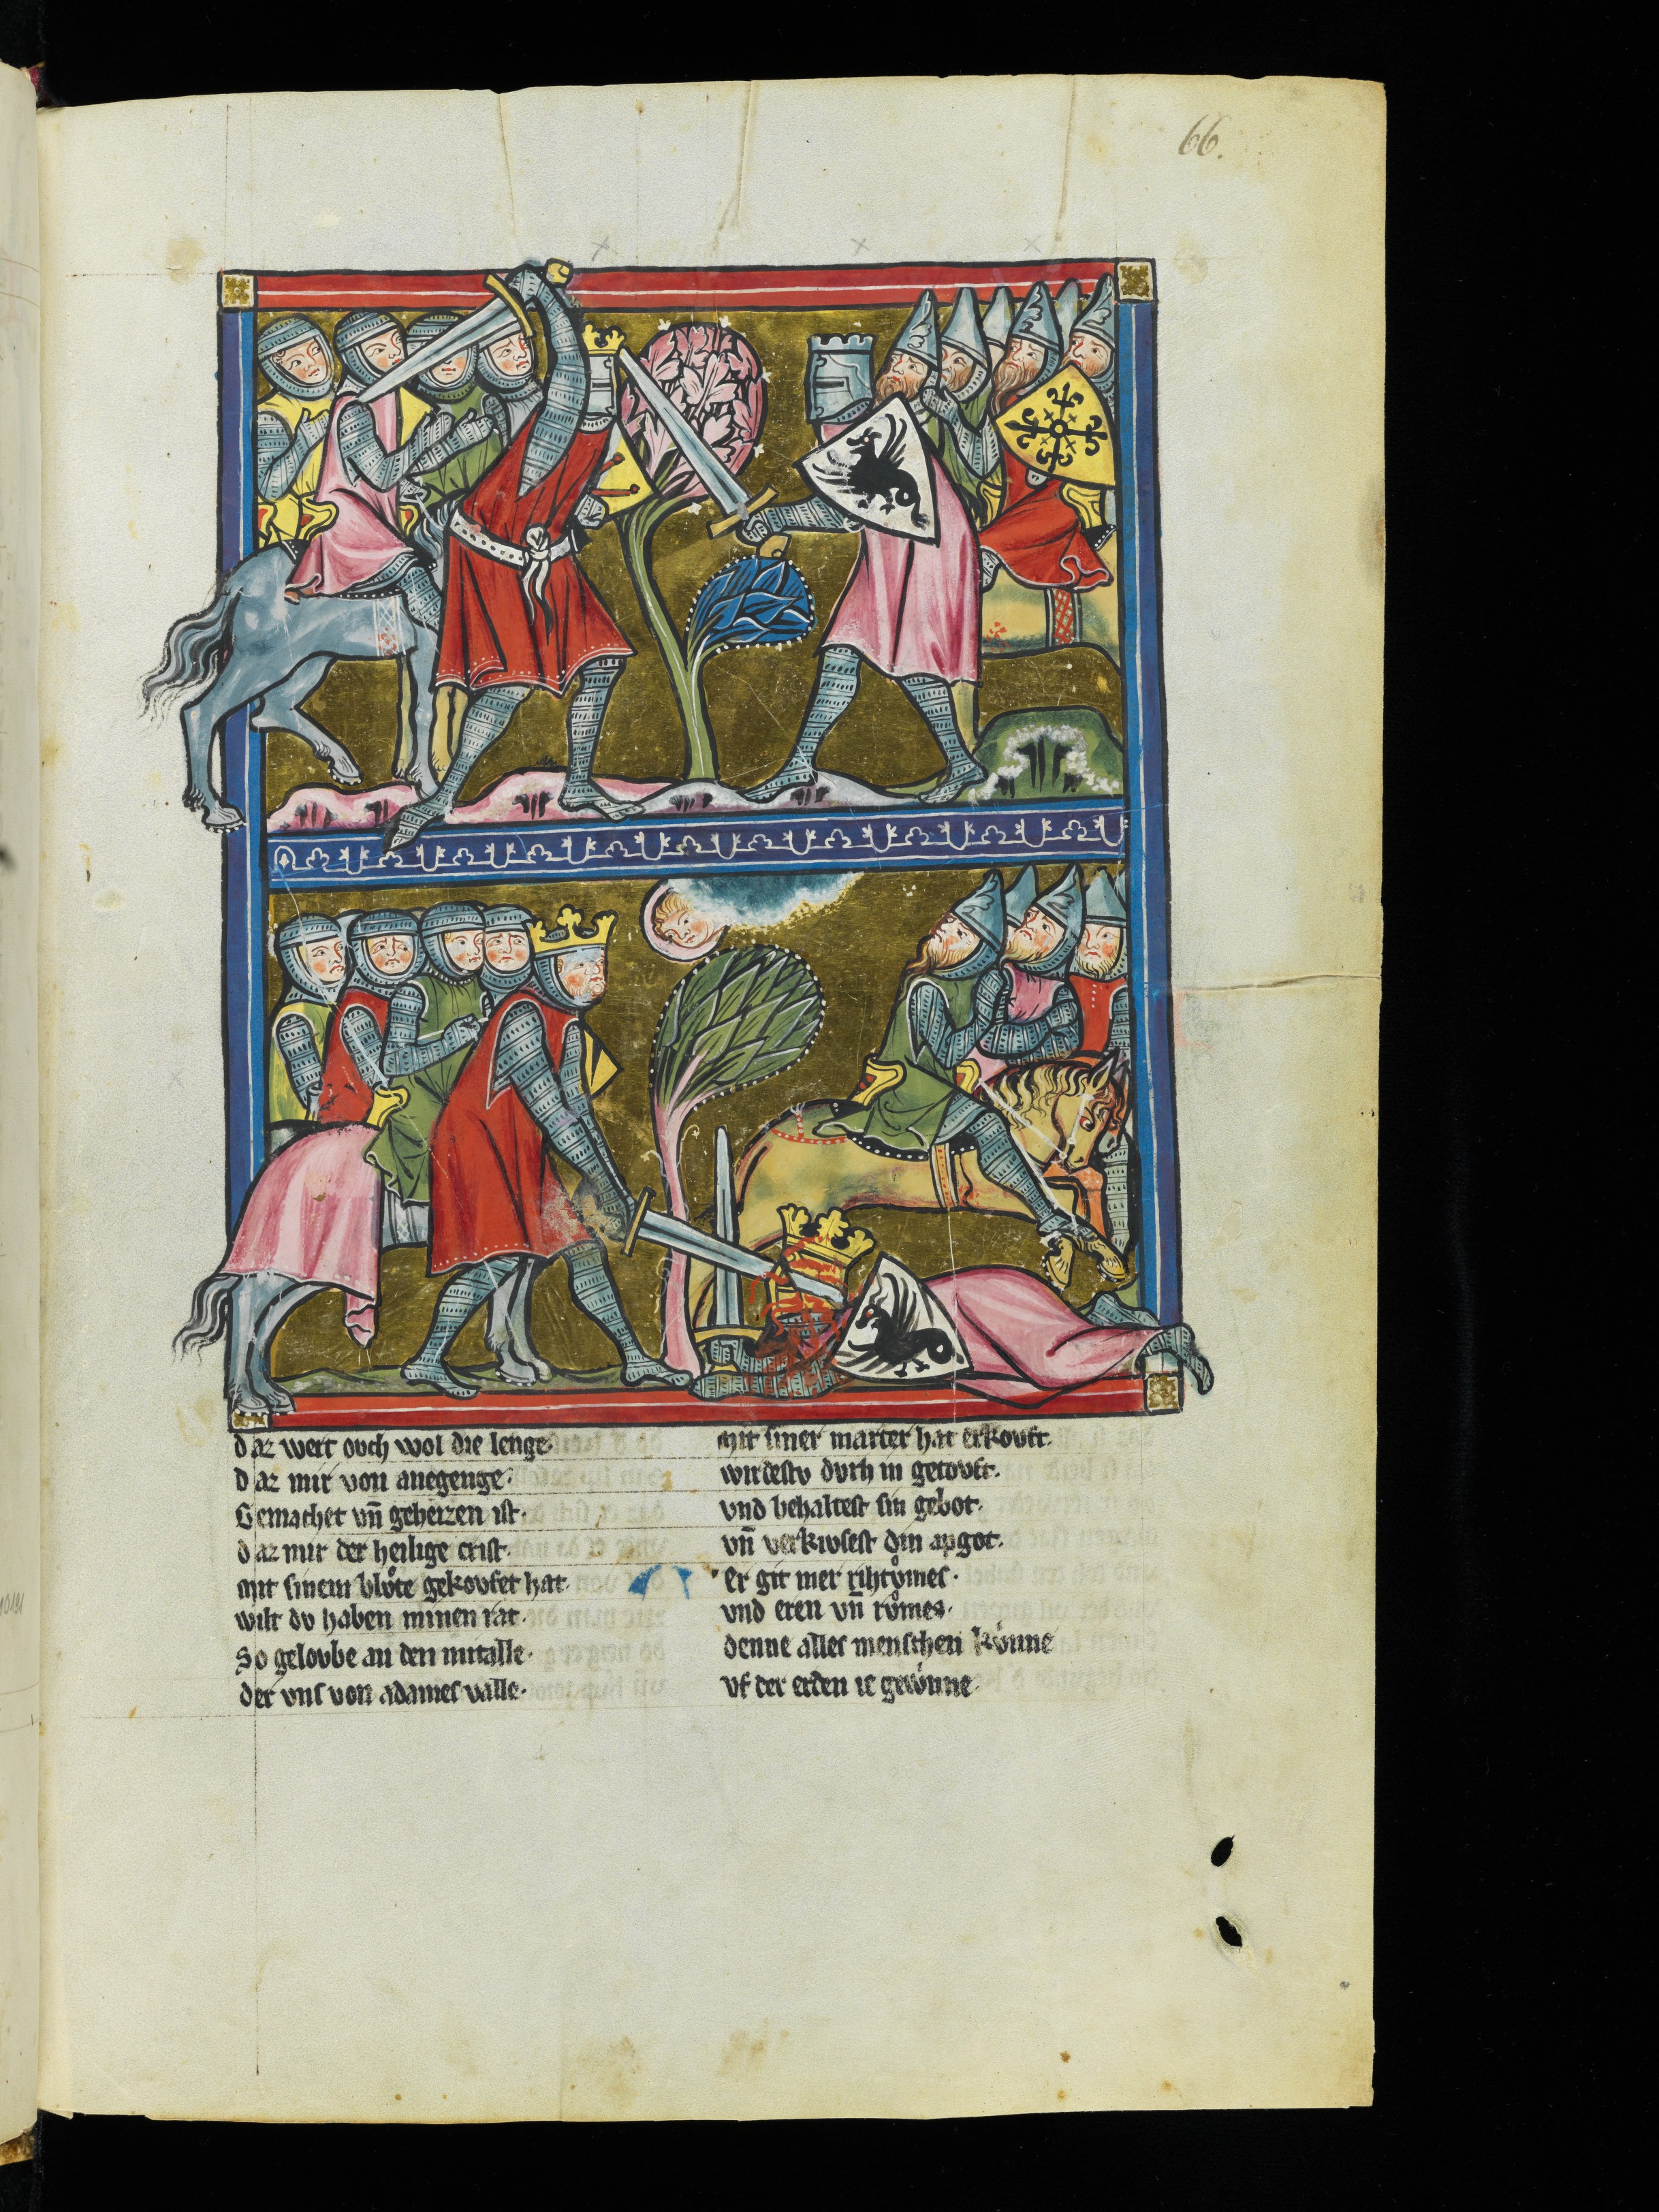 66.
daz wert ovch wol die lenge·
daz mir von anegenge·
Gemachet vn̄ geheizen ist·
daz mir der heilige crist·
mit sinem blůte gekovfet hat·
wilt dv haben minen rat·
So gelovbe an den mitalle·
der vns von adames valle·
mit siner marter hat erkovft·
wirdestv dvrh in getovft·
vnd behaltest sin gebot·
vn̄ verkivsest din apgot·
er git mer rihtůmes·
vnd eren vn̄ růmes·
denne alles menschen kvnne
vf der erden ie gewnne·